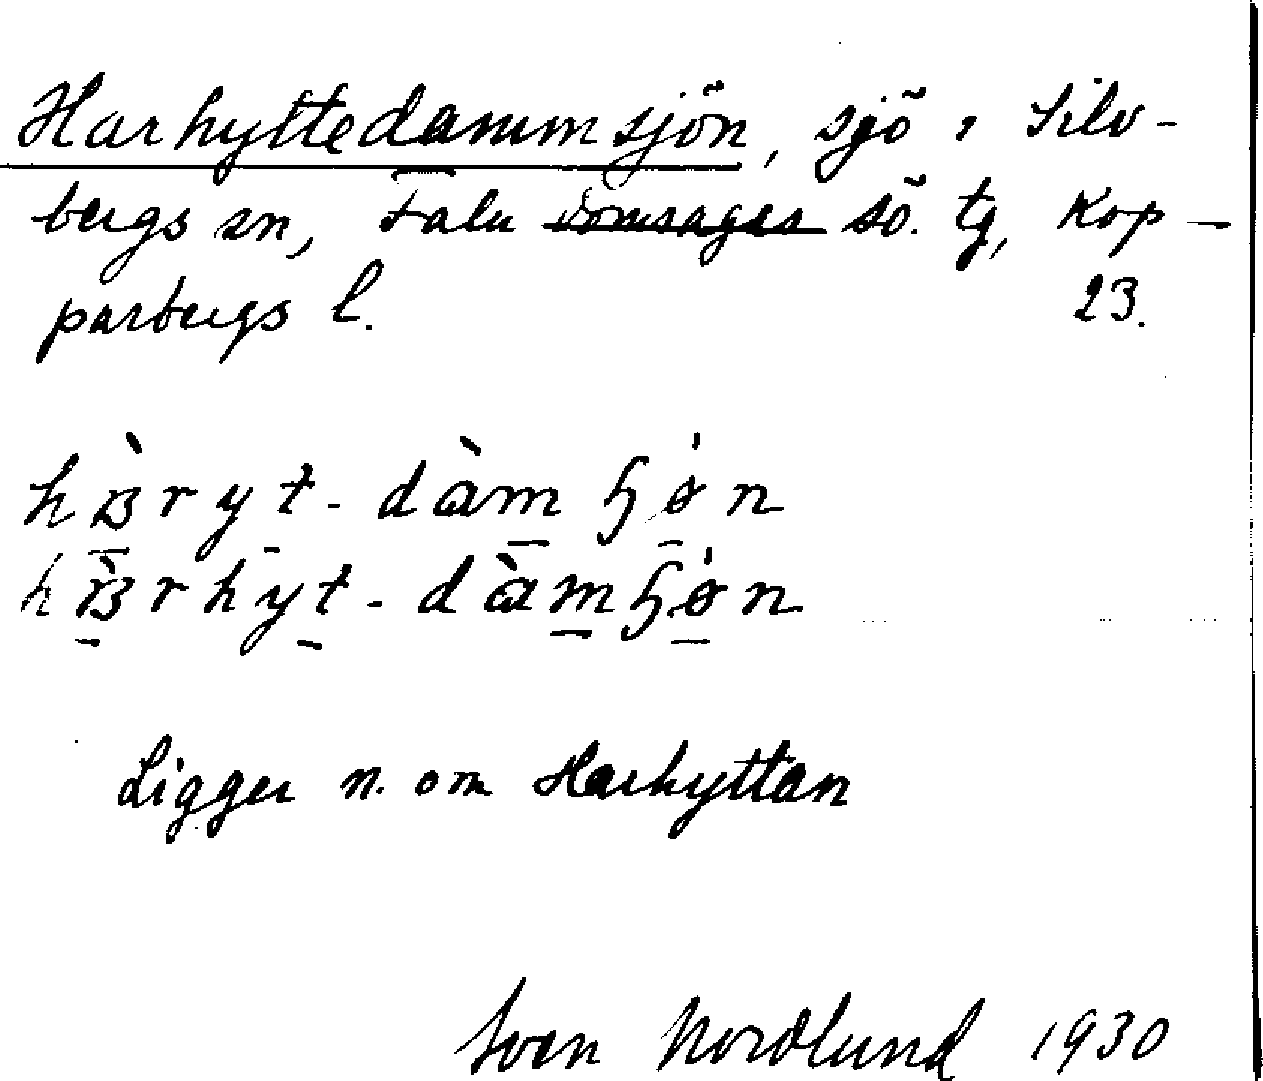 Harhyttedammsjön, sjö i Silv-
bergs sn, Falu domsagas sö. tg, Kop-
parbergs l. 23.
Ligger n. om Harhyttan
Sven Nordlund 1930